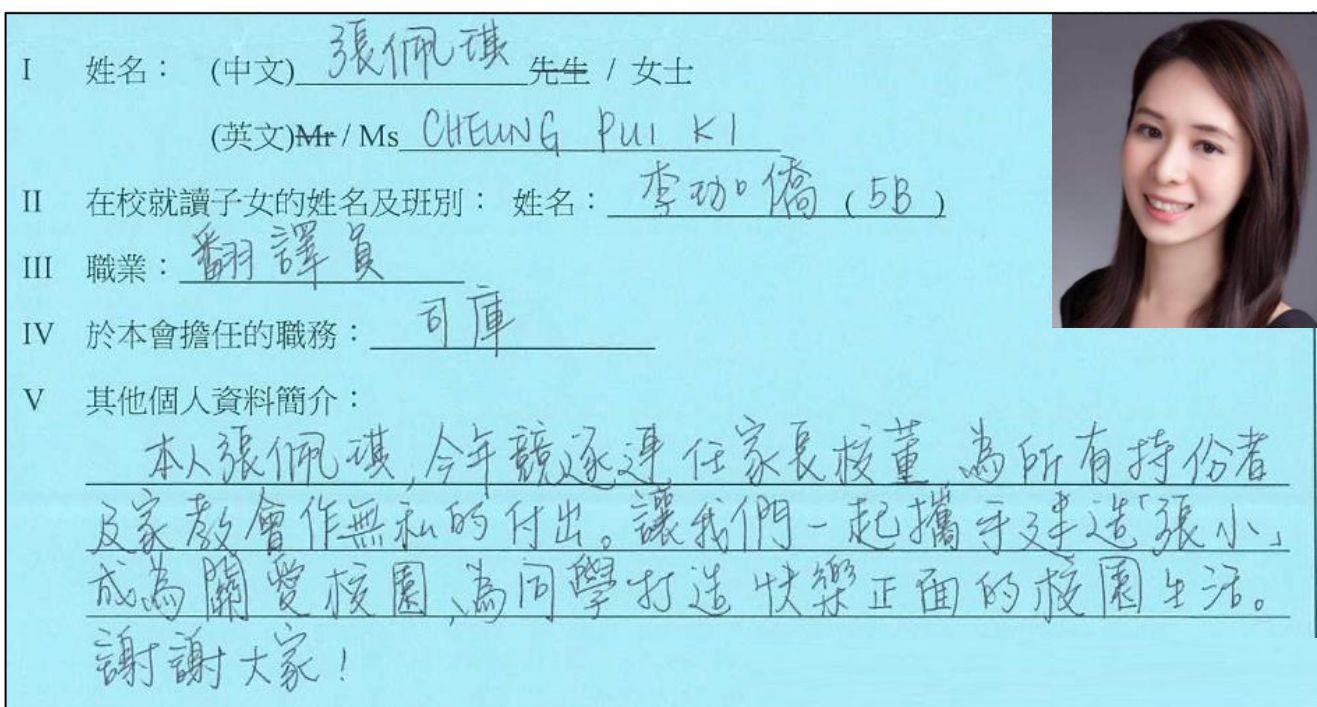 I 姓名： (中文) 張佩琪 先生 / 女士
(英文)Mr / Ms CHEUNG PUI KI
II 在校就讀子女的姓名及班別： 姓名： 李珈僑 ( 5B )
III 職業： 翻譯員
IV 於本會擔任的職務： 司庫
V 其他個人資料簡介：
本人張佩琪,今年競逐連任家長校董,為所有持份者
及家教會作無私的付出。讓我們一起攜手建造「張小」
成為關愛校園,為同學打造快樂正面的校園生活。
謝謝大家!